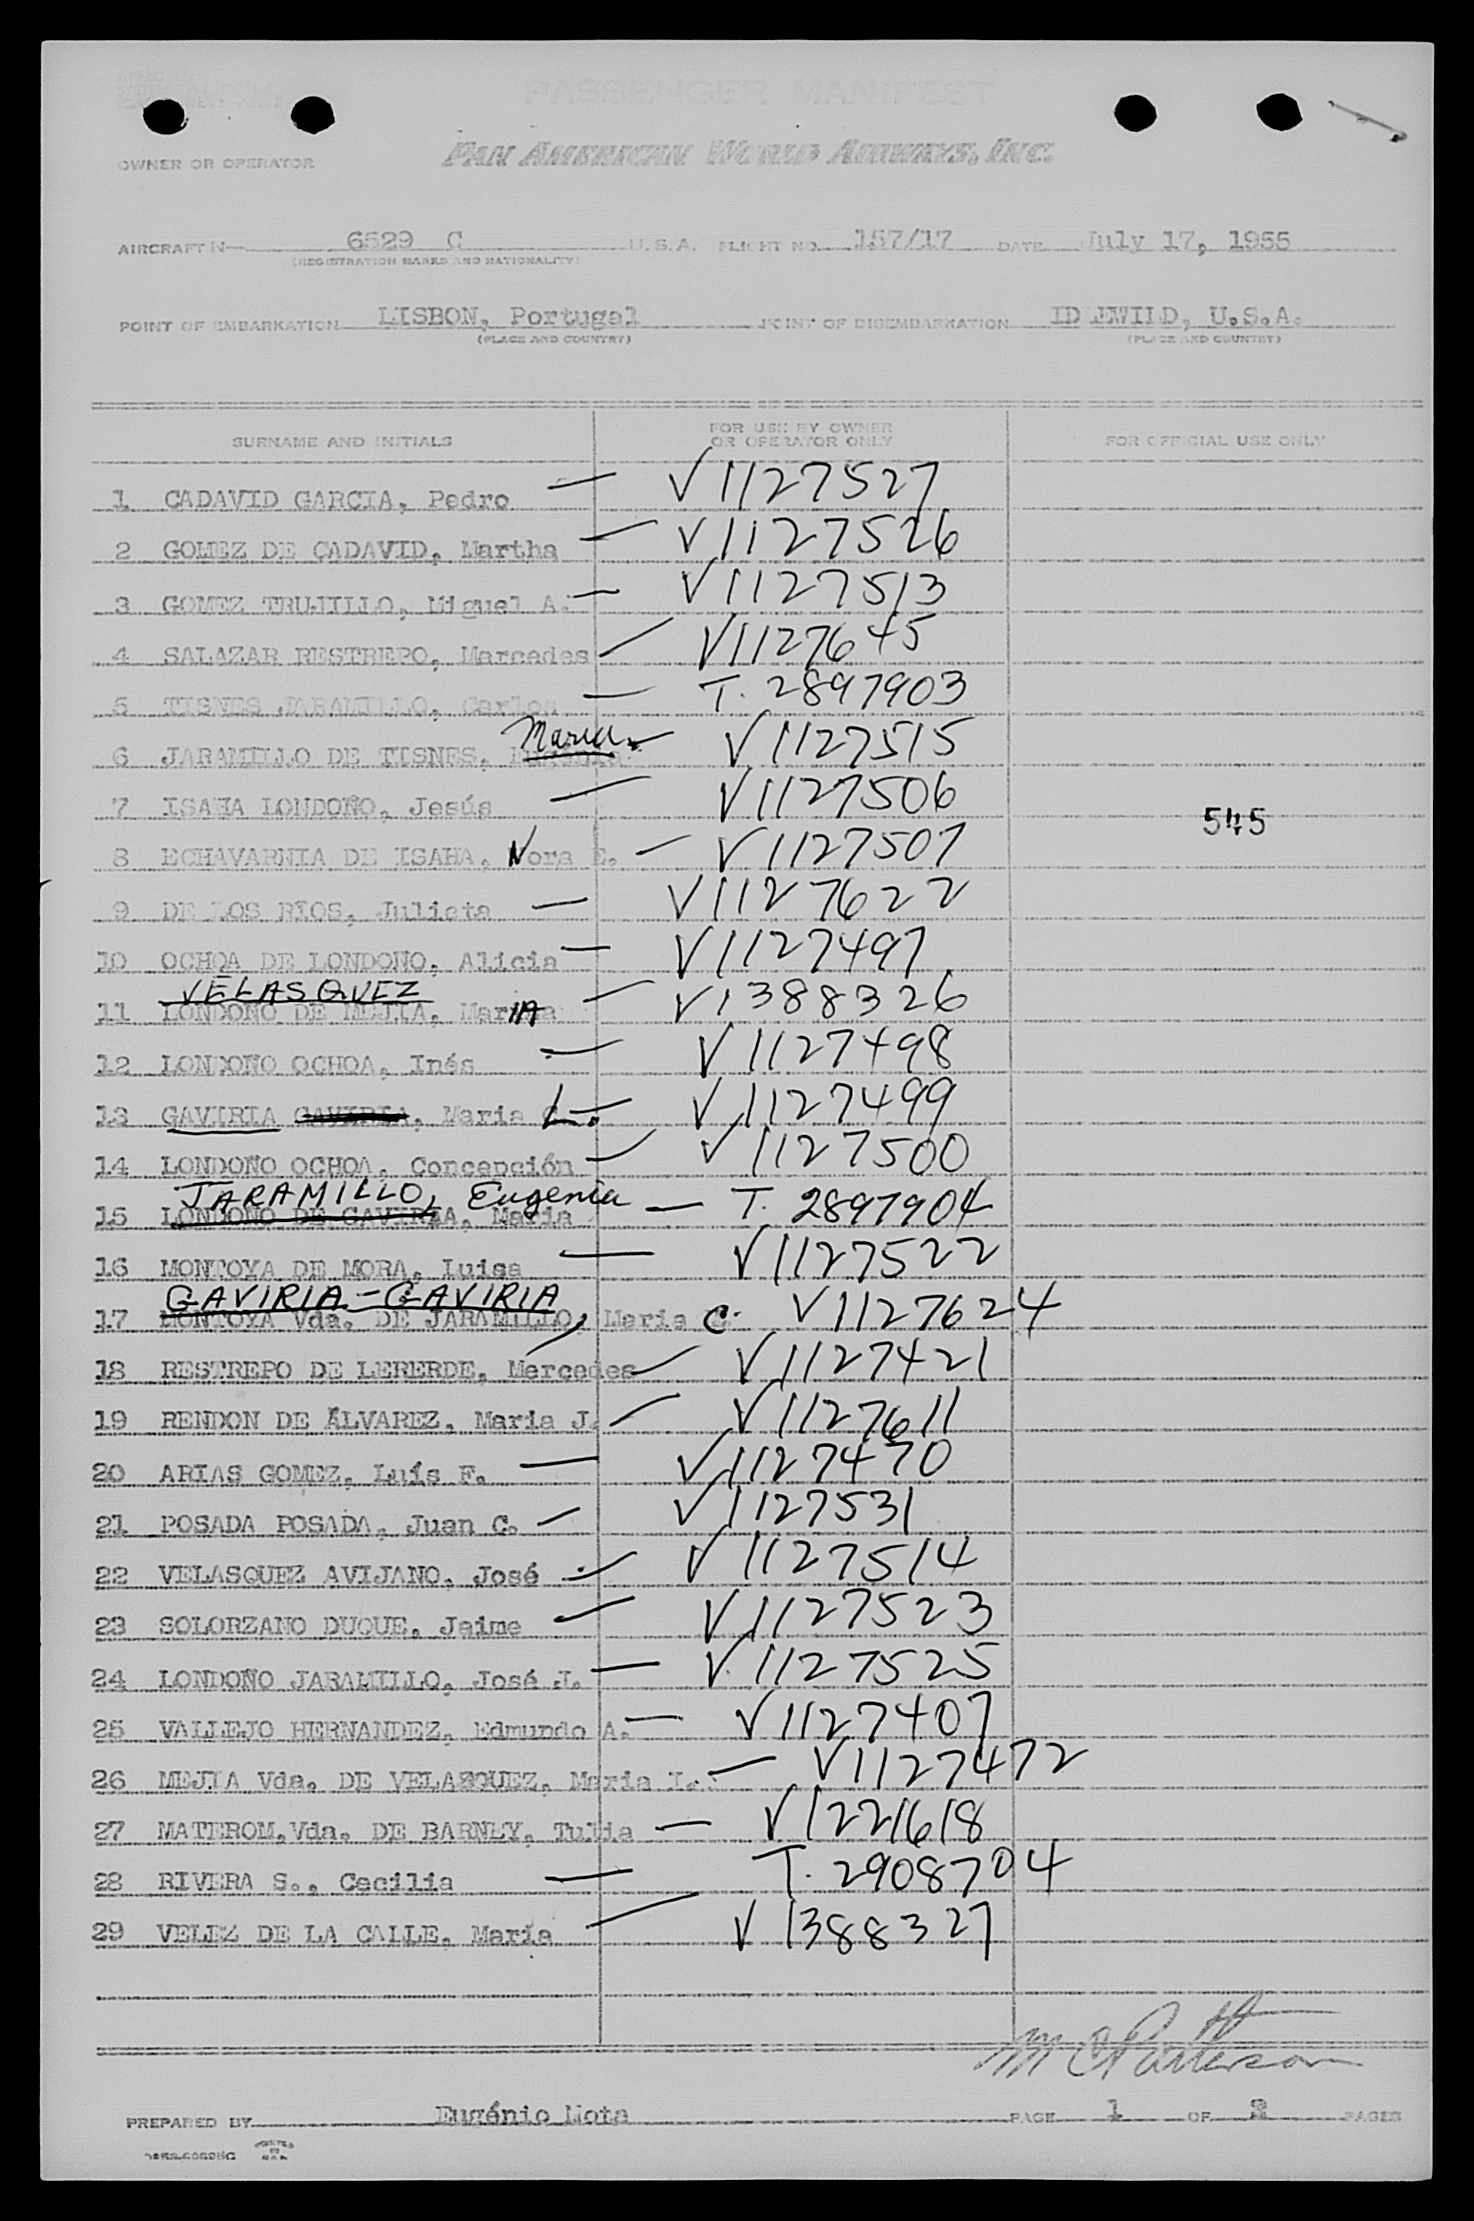 PASSENGER MANIFEST
OWNER OR OPERATOR PAN AMERICAN WORLD AIRWAYS, INC.
AIRCRAFT N— 6529 C U.S.A. FLIGHT NO. 157/17 DATE July 17, 1955
(REGISTRATION MARKS AND NATIONALITY)
POINT OF EMBARKATION LISBON, Portugal POINT OF DISEMBARKATION IDLEWILD, U.S.A.
(PLACE AND COUNTRY) (PLACE AND COUNTRY)
SURNAME AND INITIALS FOR USE BY OWNER OR OPERATOR ONLY FOR OFFICIAL USE ONLY
1 CADAVID GARCIA, Pedro — V1127527
2 GOMEZ DE CADAVID, Martha — V1127526
3 GOMEZ TRUJILLO, Miguel A. — V1127513
4 SALAZAR RESTREPO, Mercedes — V1127645
5 TISNES JARAMILLO, Carlos — T. 2897903
Maria
6 JARAMILLO DE TISNES, Eugenia — V1127515
7 ISAHA LONDOÑO, Jesús — V1127506
545
8 ECHAVARNIA DE ISAHA, Nora E. — V1127507
9 DE LOS RIOS, Julieta — V1127622
10 OCHOA DE LONDOÑO, Alicia — V1127497
VELASQUEZ
11 LONDOÑO DE MEJIA, MarIA — V1388326
12 LONDOÑO OCHOA, Inés — V1127498
13 GAVIRIA GAVIRIA, Maria L. — V1127499
14 LONDOÑO OCHOA, Concepción — V1127500
JARAMILLO, Eugenia
15 LONDOÑO DE GAVIRIA, Maria — T. 2897904
16 MONTOYA DE MORA, Luisa — V1127522
GAVIRIA-GAVIRIA
17 MONTOYA Vda. DE JARAMILLO, Maria C. V1127624
18 RESTREPO DE LERERDE, Mercedes — V1127421
19 RENDON DE ÁLVAREZ, Maria J. — V1127611
20 ARIAS GOMEZ, Luís F. — V1127470
21 POSADA POSADA, Juan C. — V1127531
22 VELASQUEZ AVIJANO, José — V1127514
23 SOLORZANO DUQUE, Jaime — V1127523
24 LONDOÑO JARAMILLO, José J. — V1127525
25 VALLEJO HERNANDEZ, Edmundo A. — V1127407
26 MEJIA Vda. DE VELASQUEZ, Maria I. — V1127472
27 MATEROM, Vda. DE BARNEY, Tulia — V1221618
28 RIVERA S., Cecilia — T. 2908704
29 VELEZ DE LA CALLE, María — V1388327
M C Patterson
PREPARED BY Eugénio Mota PAGE 1 OF 2 PAGES